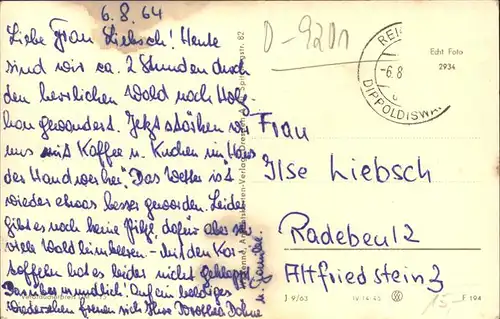 6.8.64
Liebe Frau Liebsch! Heute
sind wir ca. 2 Stunden durch
den herrlichen Wald nach Hols-
hau gewandert. Jetzt stärken wir
uns mit Kaffee u. Kuchen im "Haus
der Handwerker". Das Wetter ist
wieder etwas besser geworden. Leider
gibt es noch keine Pilze, dafür aber so
viele Waldhimbeeren – mit den Kar-
toffeln hat es leider nicht geklappt.
Darüber mündlich! Auf ein baldiges
Wiedersehen freuen sich Ihre Dorothea Dohne
u. Familie.
D-92D1
Echt Foto
2934
-6.8
DIPPOLDISWA
Frau
Ilse Liebsch
Radebeul 2
Altfriedstein 3
15,-
J 9/63
IV-14-45
F 194